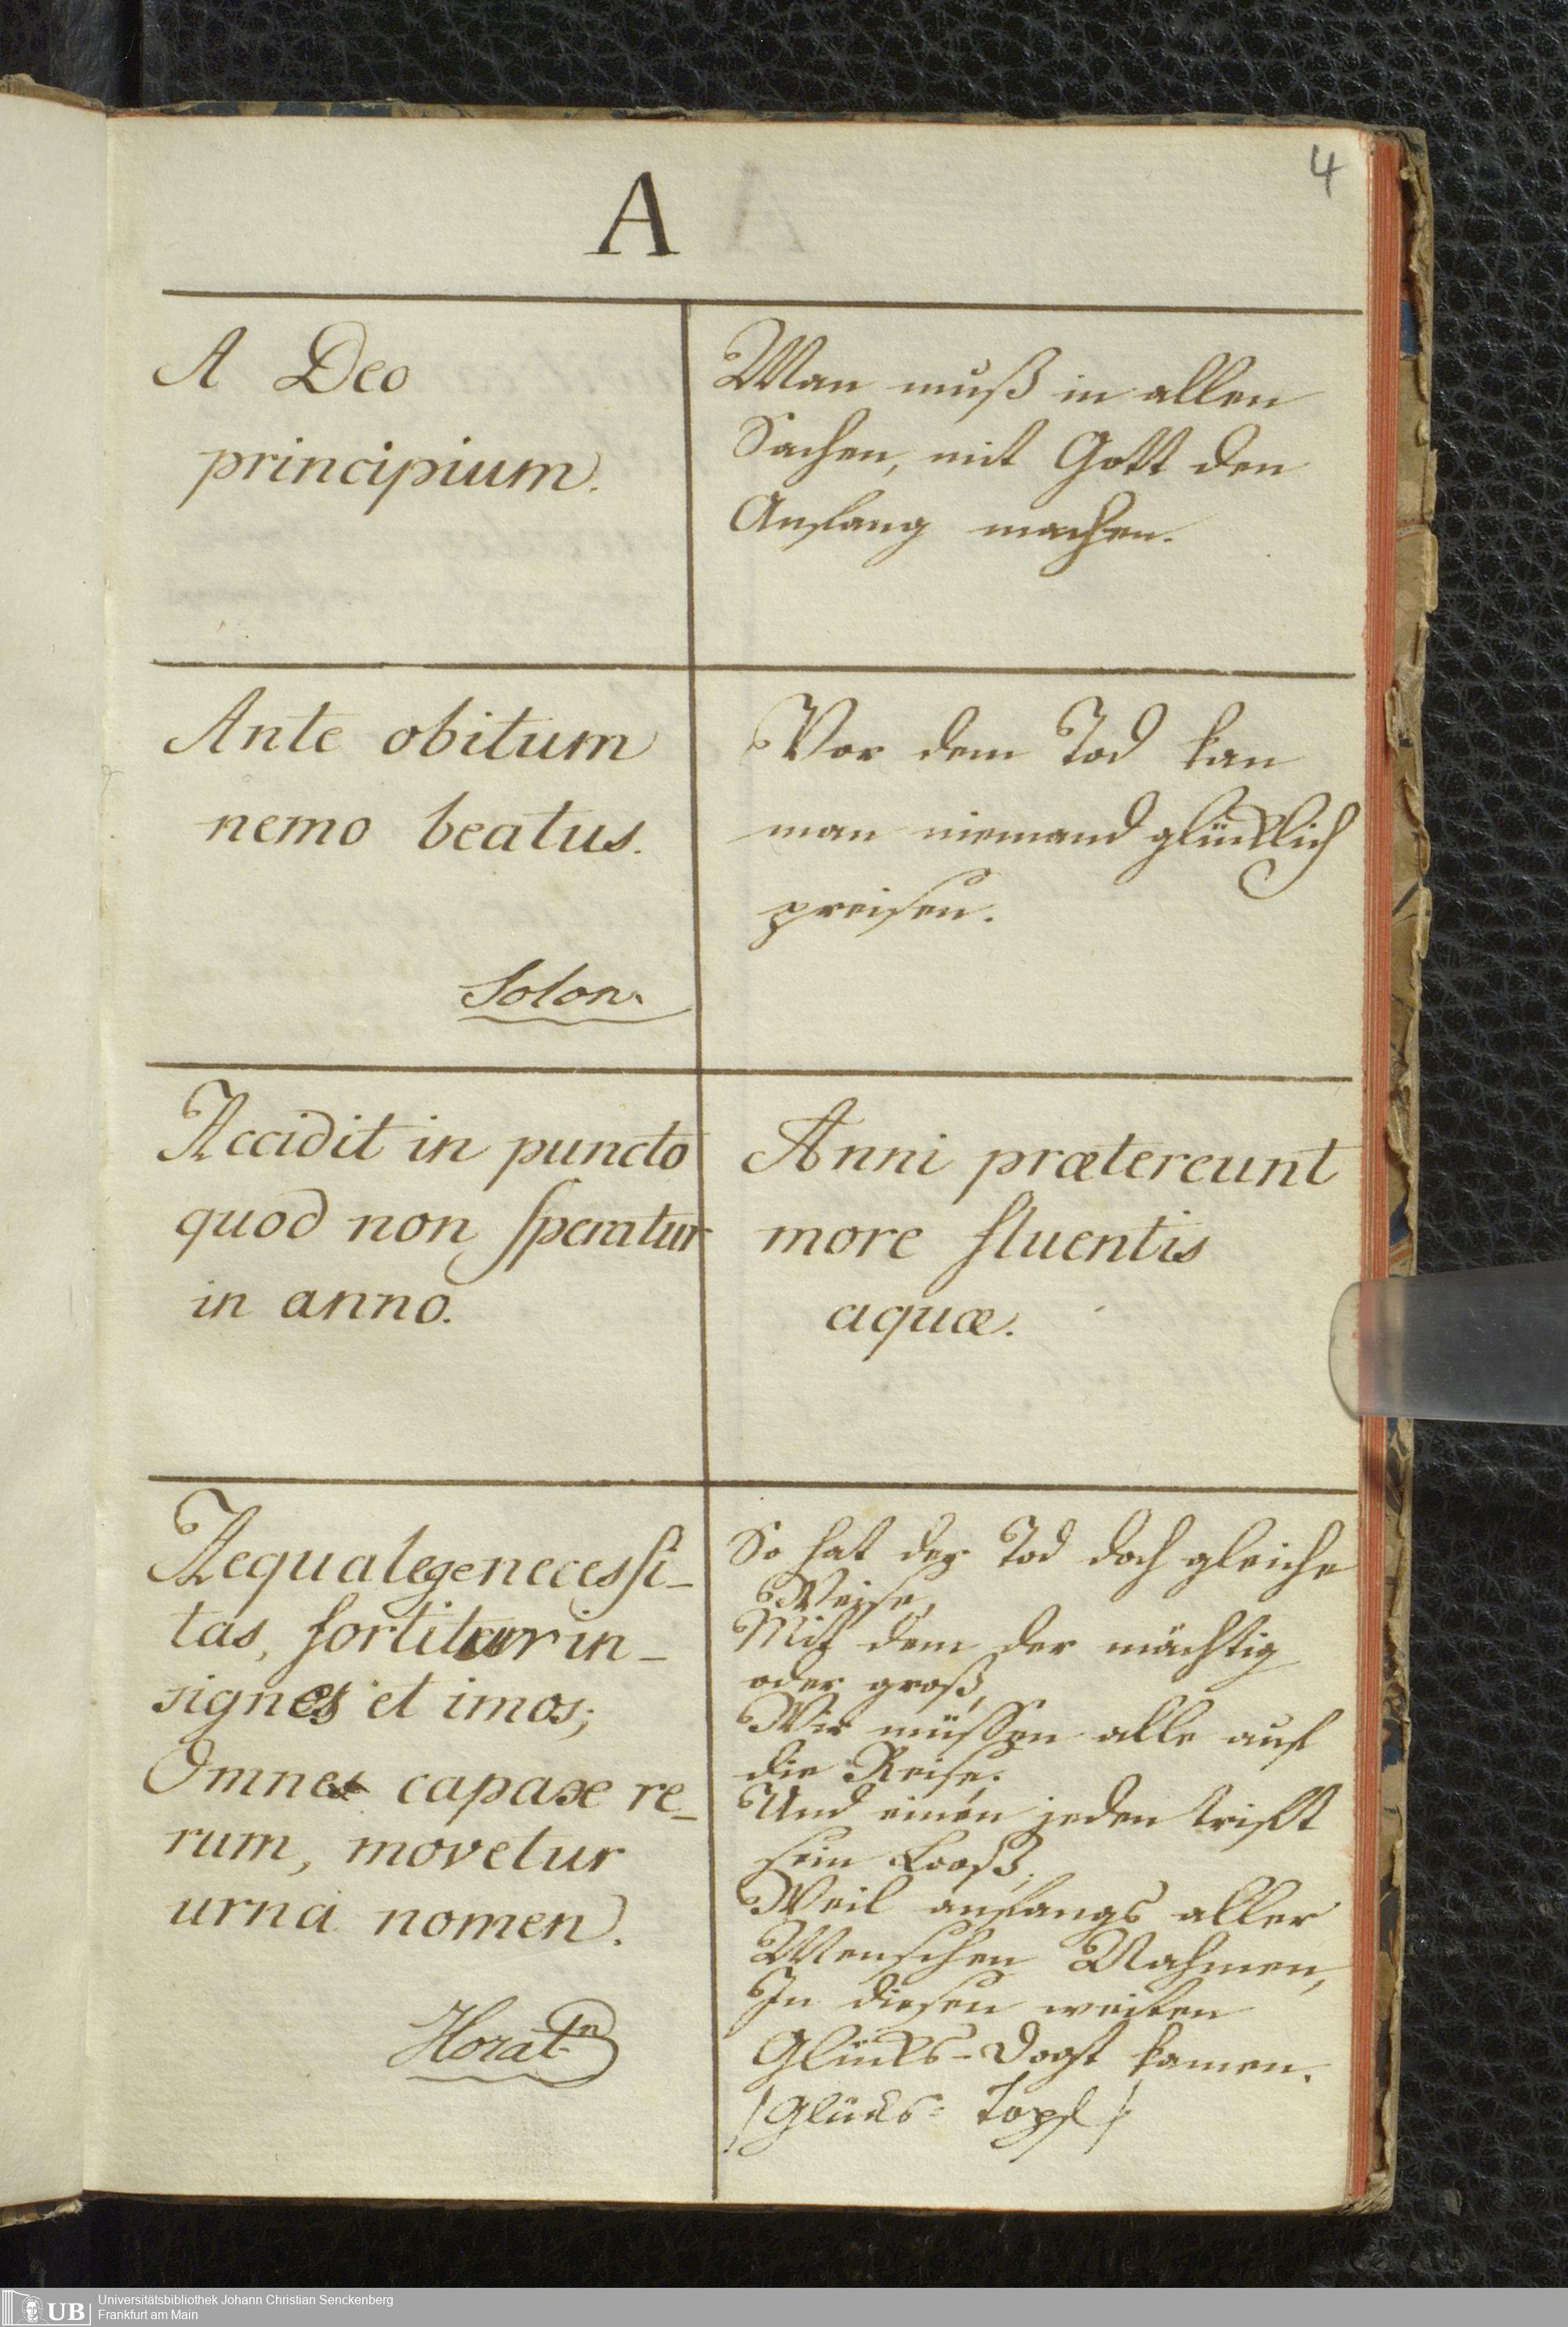 4
A
A Deo
principium.
Man muß in allen
Sachen, mit Gott den
Anfang machen.
Ante obitum
nemo beatus.
Solon.
Vor dem Tod kan
man niemand glücklich
preisen.
Accidit in puncto
quod non speratur
in anno.
Anni prætereunt
more fluentis
aquæ.
Aequa lege necessi-
tas, sortitur in-
signes et imos;
Omne capax re-
rum, movetur
urna nomen.
Horat
So hat der Tod doch gleiche
Weise,
Mit dem der mächtig
oder groß,
Wir müssen alle auf
die Reise.
Und einen jeden trifft
sein Looß,
Weil anfangs aller
Menschen Nahmen,
In diesen weiten
Glücks- kamen.
(Glücks= Topf)
Universitätsbibliothek Johann Christian Senckenberg
Frankfurt am Main
UB